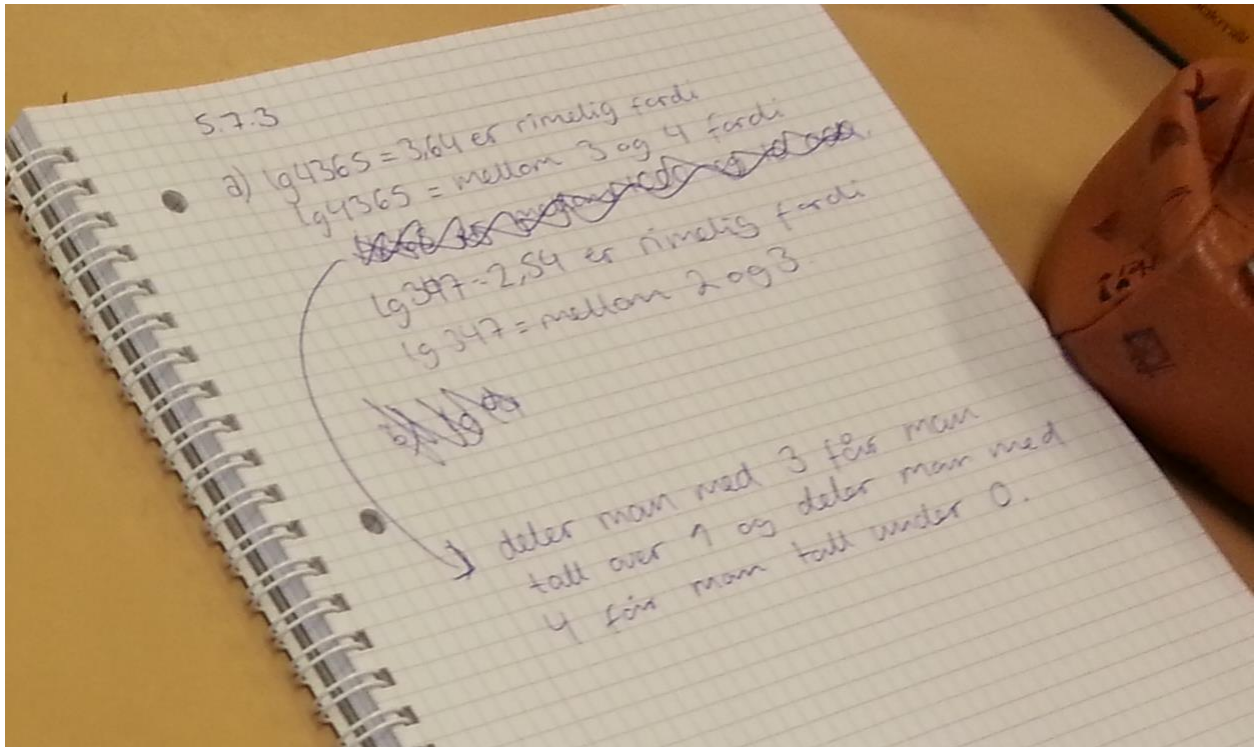 5.7.3
a) lg4365 = 3,64 er rimelig fordi
lg4365 = mellom 3 og 4 fordi
lg347 = 2,54 er rimelig fordi
lg 347 = mellom 2 og 3.
deler man med 3 får man
tall over 1 og deler man med
4 får man tall under 0.